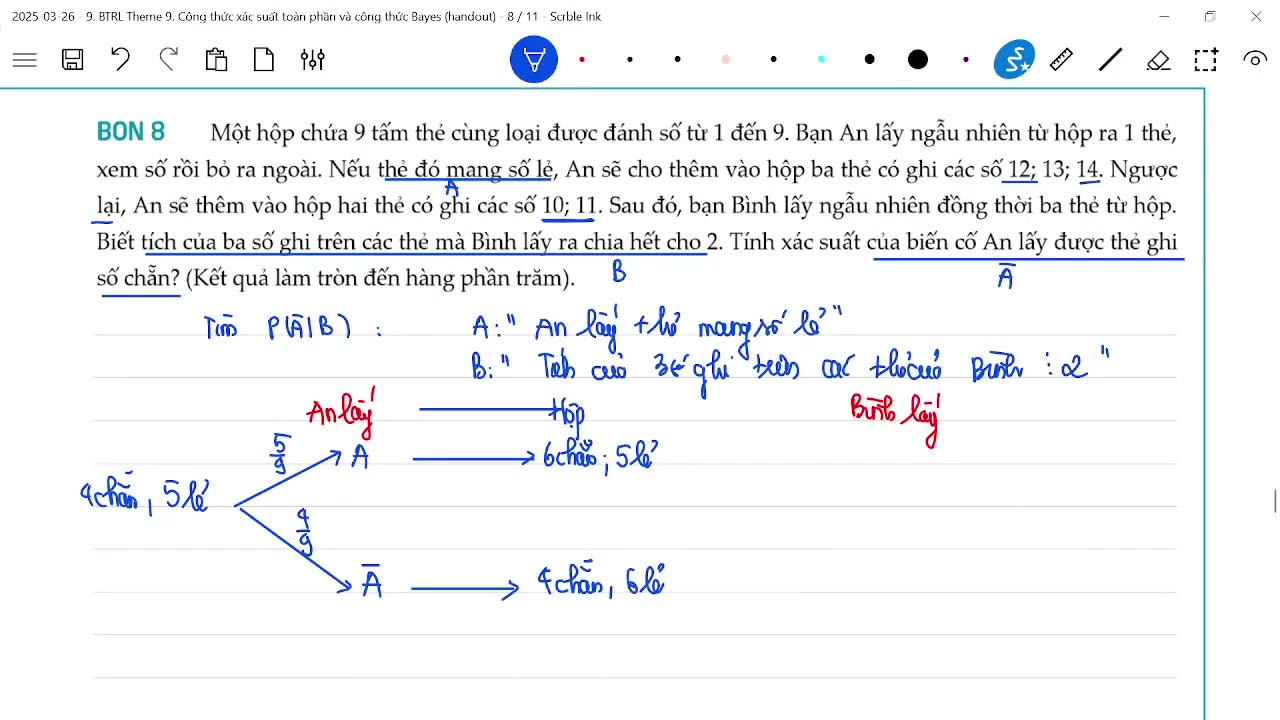 2025-03-26 - 9. BTRL Theme 9. Công thức xác suất toàn phần và công thức Bayes (handout) - 8 / 11 - Scrble Ink
BON 8 Một hộp chứa 9 tấm thẻ cùng loại được đánh số từ 1 đến 9. Bạn An lấy ngẫu nhiên từ hộp ra 1 thẻ,
xem số rồi bỏ ra ngoài. Nếu thẻ đó mang số lẻ, An sẽ cho thêm vào hộp ba thẻ có ghi các số 12; 13; 14. Ngược
A
lại, An sẽ thêm vào hộp hai thẻ có ghi các số 10; 11. Sau đó, bạn Bình lấy ngẫu nhiên đồng thời ba thẻ từ hộp.
Biết tích của ba số ghi trên các thẻ mà Bình lấy ra chia hết cho 2. Tính xác suất của biến cố An lấy được thẻ ghi
số chẵn? (Kết quả làm tròn đến hàng phần trăm).
B Ā
Tìm P(Ā|B) : A: " An lấy thẻ mang số lẻ "
B: " Tích của 3 số ghi trên các thẻ của Bình ⋮ 2 "
An lấy Hộp Bình lấy
5/9 A 6 chẵn; 5 lẻ
4 chẵn, 5 lẻ
4/9
Ā 4 chẵn, 6 lẻ